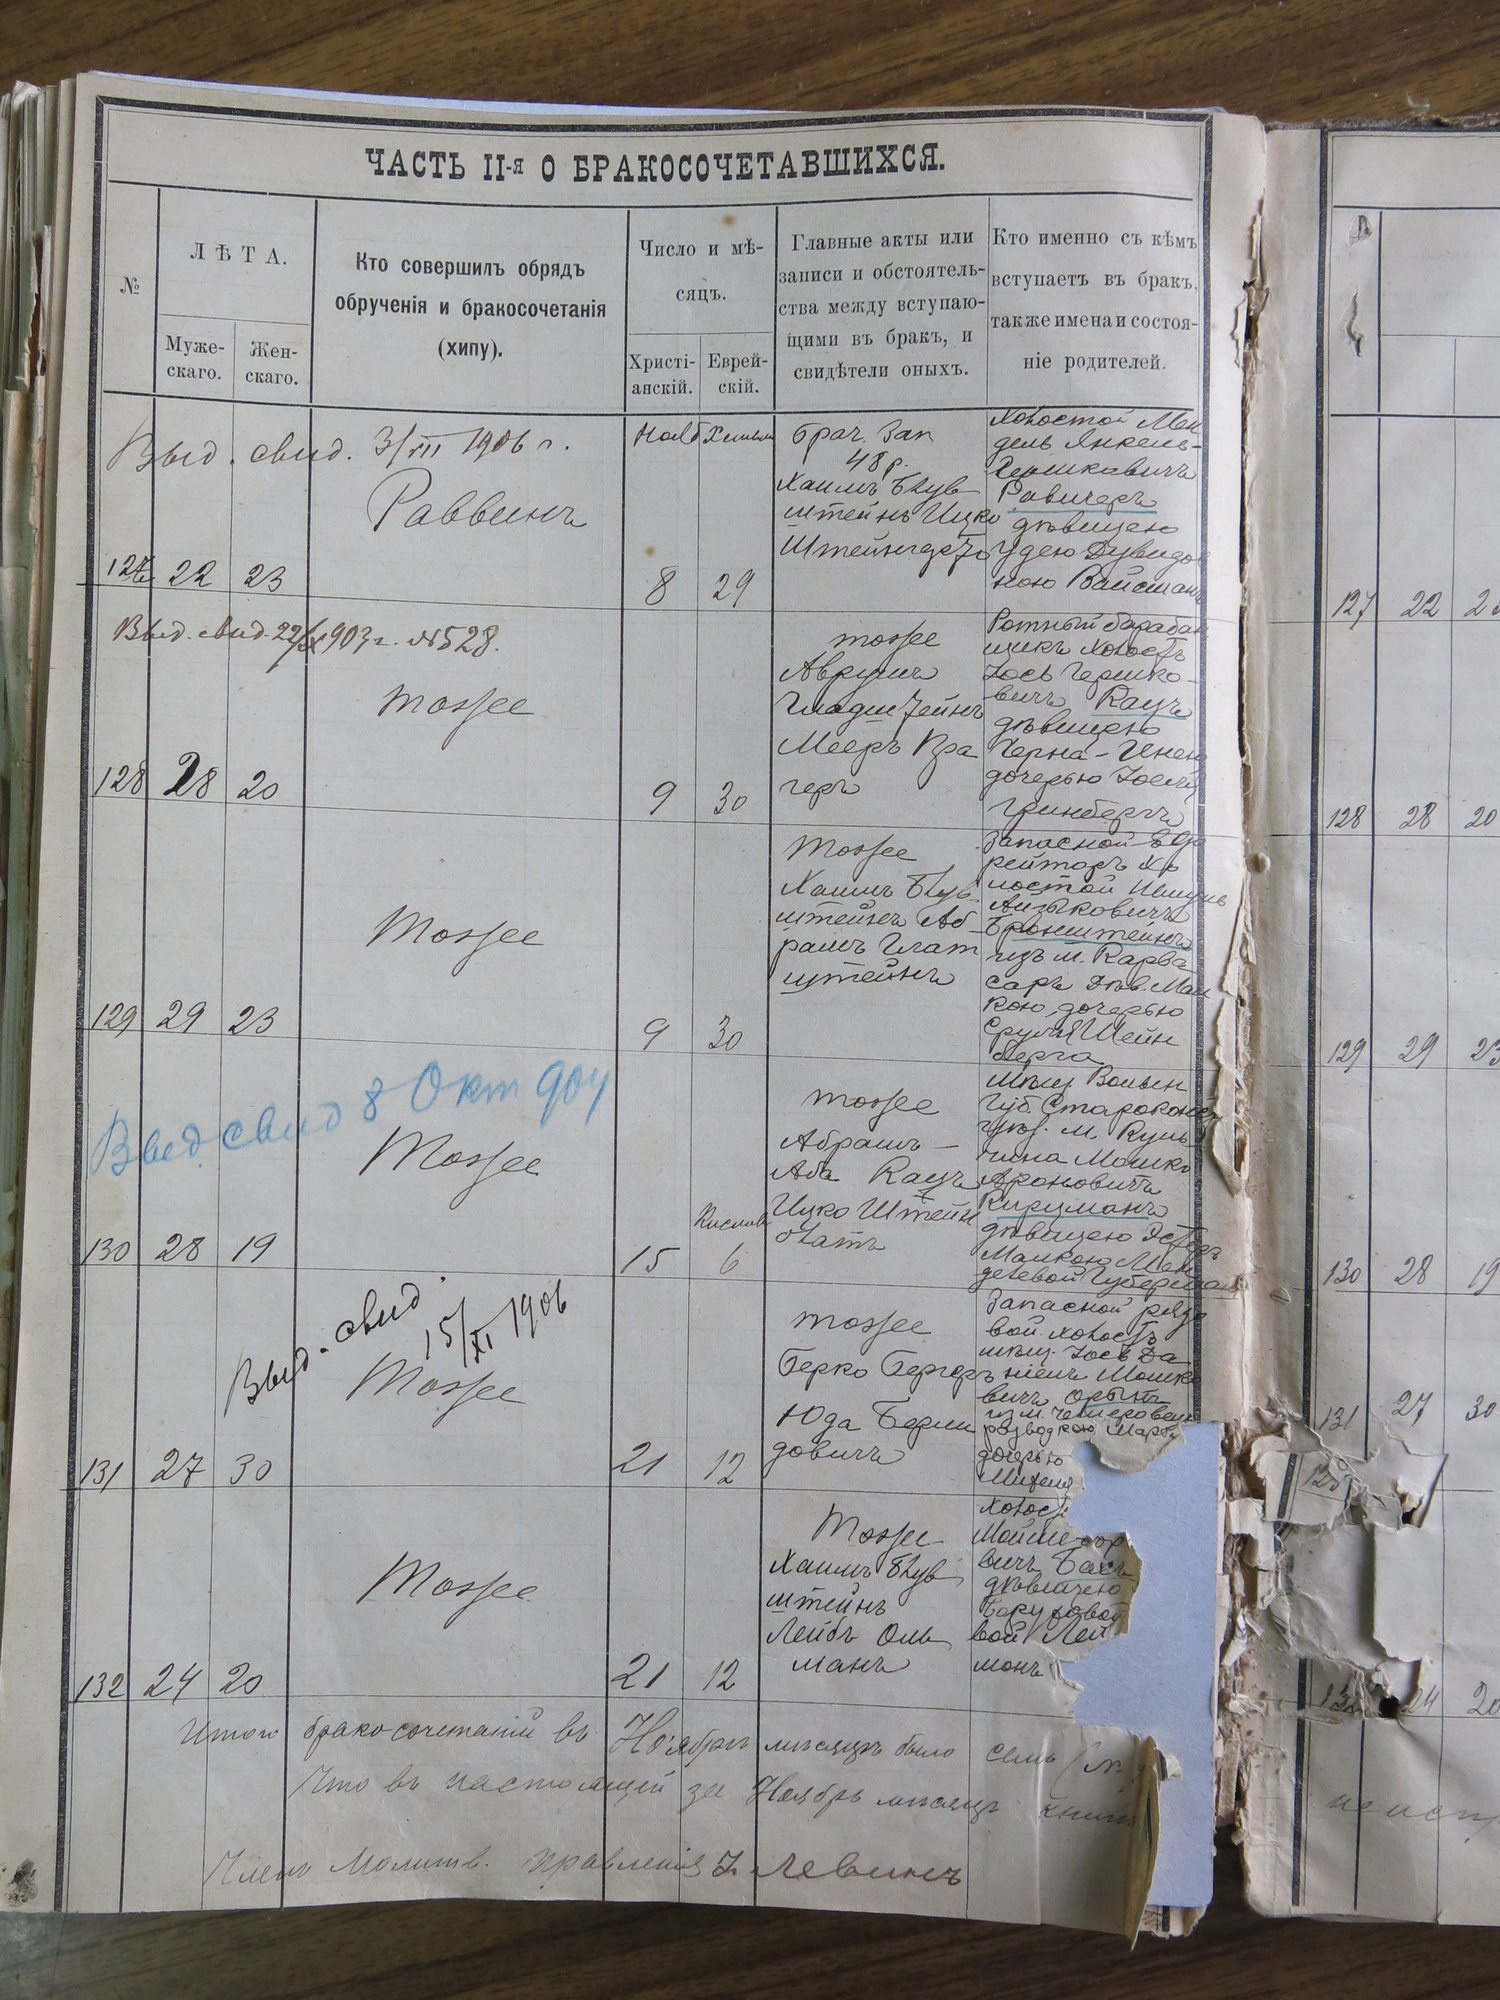 ЧАСТЬ II-я О БРАКОСОЧЕТАВШИХСЯ.
№
ЛѢТА.
Муже-
скаго.
Жен-
скаго.
Кто совершилъ обрядъ
обрученія и бракосочетанія
(хипу).
Число и мѣ-
сяцъ.
Христі-
анскій.
Еврей-
скій.
Главные акты или
записи и обстоятель-
ства между вступаю-
щими въ бракъ, и
свидѣтели оныхъ.
Кто именно съ кѣмъ
вступаетъ въ бракъ,
также имена и состоя-
ніе родителей.
Выд. свид. 3/XII 1906 г.
Раввинъ
127 22 23
8 29
Брач. Зап
48 р.
Хаимъ Блув
штейнъ Ицко
Холостой Мен
дель Янкель-
Гершковичъ
Равичеръ
дѣвицею
Удею Дувидов
ною Вайсманъ
Выд. свид. 22/IX 903 г. №528.
тоже
128 28 20
9 30
тоже
Аврумъ
Гладштейнъ
Мееръ Кра
черъ
Ротный барабан
щикъ холост
Іось Гершко-
вичъ Кацъ
дѣвицею
Черна-
дочерью
Гринбергъ
Тоже
129 29 23
9 30
Тоже
Хаимъ Блув
штейнъ Аб-
рамъ Глат
штейнъ
Запасной Еф
рейторъ хо
лостой
Айзыковичъ
Бронштейнъ
изъ м. Карва
саръ дѣв. Мал
кою дочерью
Сруля Шейн
берга
Выд свид 8 Окт 904
Тоже
130 28 19
15 6
тоже
Абрамъ-
Аба Кацъ
Ицко Штейн
блатъ
Мѣщ Волын
Губ. Староконст
уѣз. м. Куль
чина Мошко
Ароновичъ
Кирцманъ
дѣвицею Эстеръ
Малкою Мен
делевой Губерманъ
Выд. свид.
15/XI 1906
Тоже
131 27 30
21 12
тоже
Берко Бергеръ
Юда Берш
довичъ
Запасной рядо
вой холост
мѣщ. Іось Да
ніелъ Мошко
вичъ
из м. Чемеровецъ
разводкою
дочерью
Тоже
132 24 20
21 12
Тоже
Хаимъ Блув
штейнъ
Лейбъ Оль
манъ
Холост
вичъ Басъ
дѣвицею
вой Лей
монъ
Итого бракосочетаній въ Ноябрѣ мѣсяцѣ было семь
Что въ настоящей за Ноябрь мѣсяцъ книгѣ
Членъ Молитв. правленія Х. Левинъ
127 22 2
128 28 20
129 29 23
130 28 19
131 27 30
24 20